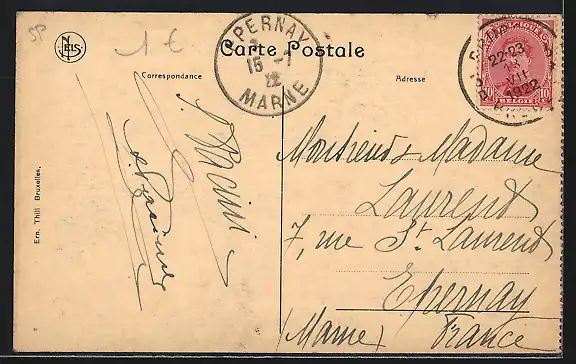 SP
NELS
1 €
EPERNAY
15 -7
22
MARNE
Carte Postale
Correspondance
Adresse
BELGIQUE
10 10
BELGIE
22-23
VII
1922
Ern. Thill Bruxelles.
Monsieur & Madame
Laurend
7, rue St. Laurend
Epernay
(Marne) France